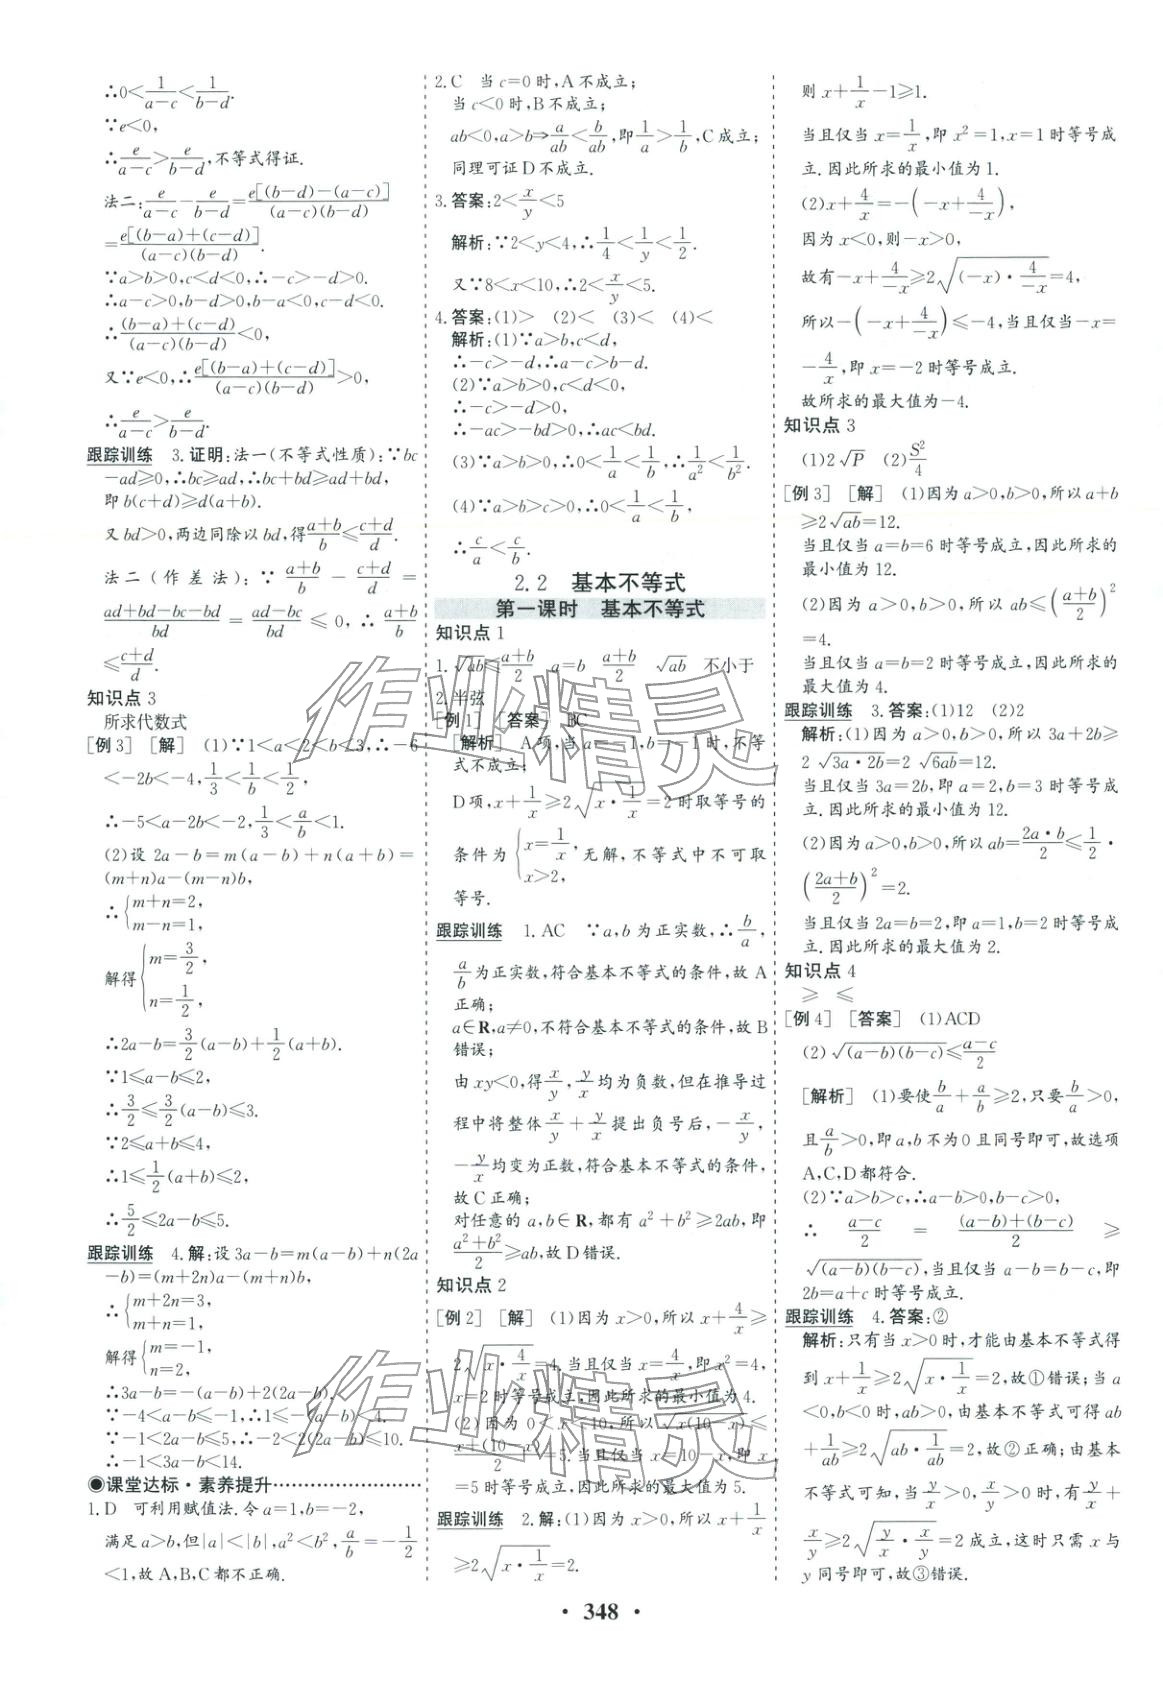 ∴0<1/(a−c)<1/(b−d).
∵e<0,
∴e/(a−c)>e/(b−d),不等式得证.
法二:e/(a−c)−e/(b−d)=e[(b−d)−(a−c)]/((a−c)(b−d))
=e[(b−a)+(c−d)]/((a−c)(b−d)).
∵a>b>0,c<d<0,∴−c>−d>0.
∴a−c>0,b−d>0,b−a<0,c−d<0.
∴((b−a)+(c−d))/((a−c)(b−d))<0,
又∵e<0,∴e[(b−a)+(c−d)]/((a−c)(b−d))>0,
∴e/(a−c)>e/(b−d).
跟踪训练 3.证明:法一(不等式性质):∵bc
−ad≥0,∴bc≥ad,∴bc+bd≥ad+bd,
即b(c+d)≥d(a+b).
又bd>0,两边同除以bd,得(a+b)/b≤(c+d)/d.
法二(作差法):∵(a+b)/b−(c+d)/d=
(ad+bd−bc−bd)/bd=(ad−bc)/bd≤0,∴(a+b)/b
≤(c+d)/d.
知识点3
所求代数式
[例3] [解] (1)∵1<a<2<b<3,∴−6
<−2b<−4,1/3<1/b<1/2,
∴−5<a−2b<−2,1/3<a/b<1.
(2)设2a−b=m(a−b)+n(a+b)=
(m+n)a−(m−n)b,
∴{m+n=2,
m−n=1,
解得{m=3/2,
n=1/2,
∴2a−b=3/2(a−b)+1/2(a+b).
∵1≤a−b≤2,
∴3/2≤3/2(a−b)≤3.
∵2≤a+b≤4,
∴1≤1/2(a+b)≤2,
∴5/2≤2a−b≤5.
跟踪训练 4.解:设3a−b=m(a−b)+n(2a
−b)=(m+2n)a−(m+n)b,
∴{m+2n=3,
m+n=1,
解得{m=−1,
n=2,
∴3a−b=−(a−b)+2(2a−b).
∵−4<a−b≤−1,∴1≤−(a−b)<4.
∵−1<2a−b≤5,∴−2<2(2a−b)≤10.
∴−1<3a−b<14.
◉课堂达标·素养提升
1.D 可利用赋值法.令a=1,b=−2,
满足a>b,但|a|<|b|,a²<b²,a/b=−1/2
<1,故A,B,C都不正确.
2.C 当c=0时,A不成立;
当c<0时,B不成立;
ab<0,a>b⇒a/ab<b/ab,即1/a>1/b,C成立;
同理可证D不成立.
3.答案:2<x/y<5
解析:∵2<y<4,∴1/4<1/y<1/2.
又∵8<x<10,∴2<x/y<5.
4.答案:(1)> (2)< (3)< (4)<
解析:(1)∵a>b,c<d,
∴−c>−d,∴a−c>b−d.
(2)∵a>b>0,c<d<0,
∴−c>−d>0,
∴−ac>−bd>0,∴ac<bd.
(3)∵a>b>0,∴0<1/a<1/b,∴1/a²<1/b².
(4)∵a>b>c>0,∴0<1/a<1/b,
∴c/a<c/b.
2.2 基本不等式
第一课时 基本不等式
知识点1
1.√ab≤(a+b)/2 a=b (a+b)/2 √ab 不小于
2.半弦
[例1] [答案] BC
[解析] A项,当a=−1,b=−1时,不等
式不成立;
D项,x+1/x≥2√(x·1/x)=2时取等号的
条件为{x=1/x,
x>2,无解,不等式中不可取
等号.
跟踪训练 1.AC ∵a,b为正实数,∴b/a,
a/b为正实数,符合基本不等式的条件,故A
正确;
a∈R,a≠0,不符合基本不等式的条件,故B
错误;
由xy<0,得x/y,y/x均为负数,但在推导过
程中将整体x/y+y/x提出负号后,−x/y,
−y/x均变为正数,符合基本不等式的条件,
故C正确;
对任意的a,b∈R,都有a²+b²≥2ab,即
(a²+b²)/2≥ab,故D错误.
知识点2
[例2] [解] (1)因为x>0,所以x+4/x≥
2√(x·4/x)=4,当且仅当x=4/x,即x²=4,
x=2时等号成立,因此所求的最小值为4.
(2)因为0<x<10,所以√(x(10−x))≤
(x+(10−x))/2=5.当且仅当x=10−x,即x
=5时等号成立,因此所求的最大值为5.
跟踪训练 2.解:(1)因为x>0,所以x+1/x
≥2√(x·1/x)=2.
则x+1/x−1≥1.
当且仅当x=1/x,即x²=1,x=1时等号成
立.因此所求的最小值为1.
(2)x+4/x=−(−x+4/(−x)),
因为x<0,则−x>0,
故有−x+4/(−x)≥2√((−x)·4/(−x))=4,
所以−(−x+4/(−x))≤−4,当且仅当−x=
−4/x,即x=−2时等号成立.
故所求的最大值为−4.
知识点3
(1)2√P (2)S²/4
[例3] [解] (1)因为a>0,b>0,所以a+b
≥2√ab=12.
当且仅当a=b=6时等号成立,因此所求的
最小值为12.
(2)因为a>0,b>0,所以ab≤((a+b)/2)²
=4.
当且仅当a=b=2时等号成立,因此所求的
最大值为4.
跟踪训练 3.答案:(1)12 (2)2
解析:(1)因为a>0,b>0,所以3a+2b≥
2√(3a·2b)=2√(6ab)=12.
当且仅当3a=2b,即a=2,b=3时等号成
立.因此所求的最小值为12.
(2)因为a>0,b>0,所以ab=(2a·b)/2≤1/2·
((2a+b)/2)²=2.
当且仅当2a=b=2,即a=1,b=2时等号成
立.因此所求的最大值为2.
知识点4
≥ ≤
[例4] [答案] (1)ACD
(2)√((a−b)(b−c))≤(a−c)/2
[解析] (1)要使b/a+a/b≥2,只要b/a>0,
且a/b>0,即a,b不为0且同号即可,故选项
A,C,D都符合.
(2)∵a>b>c,∴a−b>0,b−c>0,
∴(a−c)/2=((a−b)+(b−c))/2≥
√((a−b)(b−c)),当且仅当a−b=b−c,即
2b=a+c时等号成立.
跟踪训练 4.答案:②
解析:只有当x>0时,才能由基本不等式得
到x+1/x≥2√(x·1/x)=2,故①错误;当a
<0,b<0时,ab>0,由基本不等式可得ab
+1/ab≥2√(ab·1/ab)=2,故②正确;由基本
不等式可知,当y/x>0,x/y>0时,有y/x+
x/y≥2√(y/x·x/y)=2成立,这时只需x与
y同号即可,故③错误.
· 348 ·
作业精灵
作业精灵